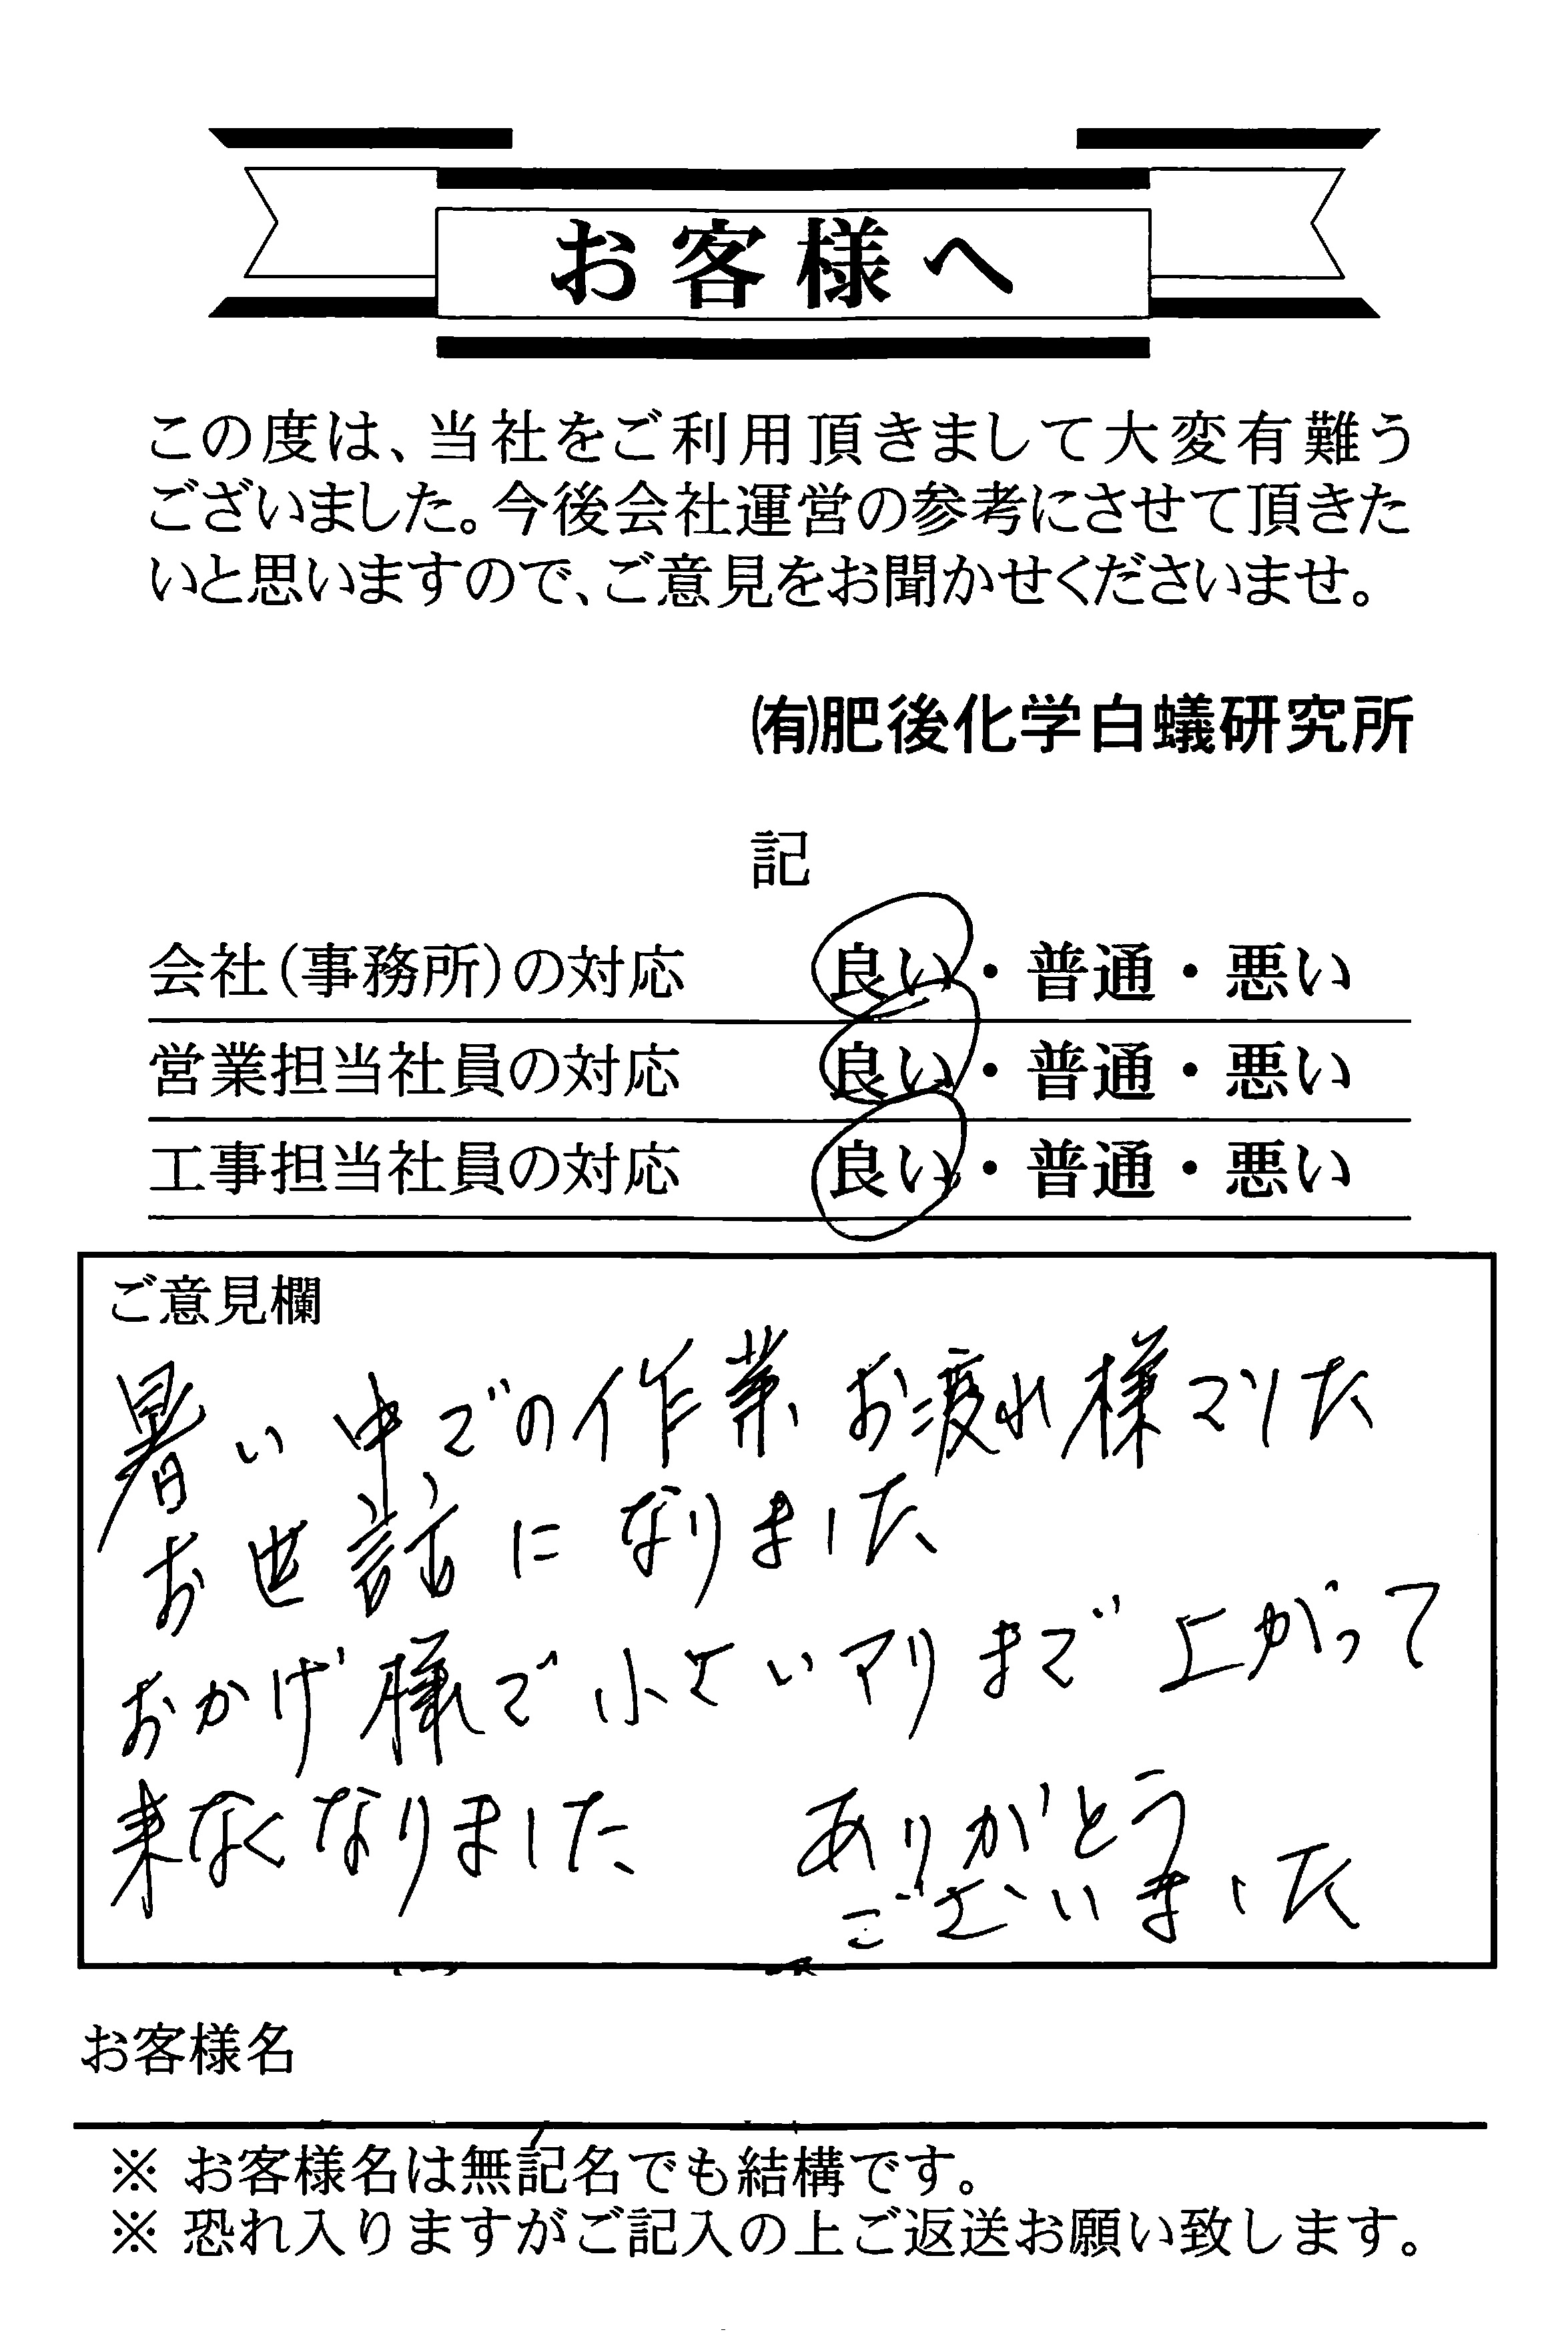 お客様へ
この度は、当社をご利用頂きまして大変有難う
ございました。今後会社運営の参考にさせて頂きた
いと思いますので、ご意見をお聞かせくださいませ。
㈲肥後化学白蟻研究所
記
会社(事務所)の対応 良い・普通・悪い
営業担当社員の対応 良い・普通・悪い
工事担当社員の対応 良い・普通・悪い
ご意見欄
暑い中での作業、お疲れ様でした
お世話になりました
おかげ様で小さいアリまで上がって
来なくなりました ありがとう
ございました
お客様名
※ お客様名は無記名でも結構です。
※ 恐れ入りますがご記入の上ご返送お願い致します。